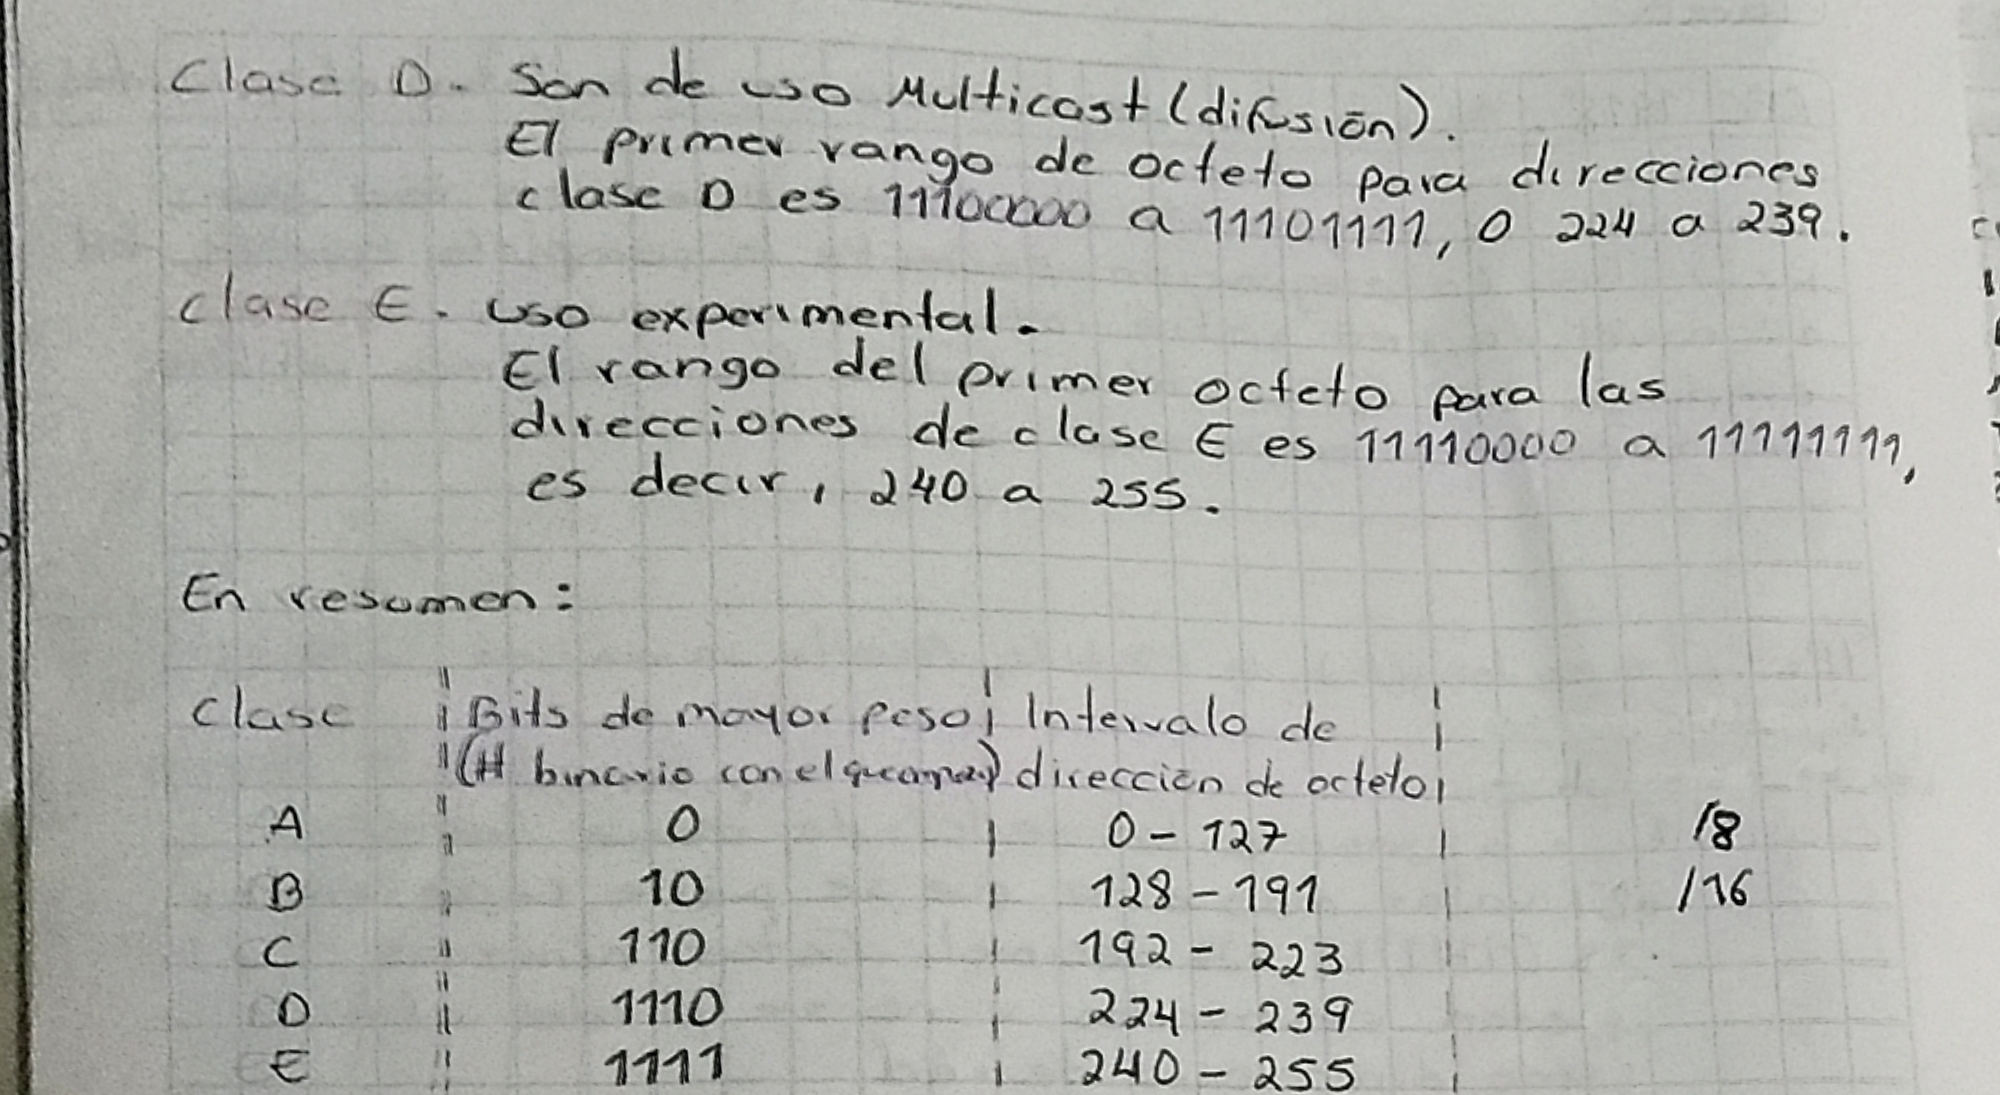 Clase D. Son de uso Multicast (difusión).
El primer rango de octeto para direcciones
clase D es 11100000 a 11101111, o 224 a 239.
Clase E. uso experimental.
El rango del primer octeto para las
direcciones de clase E es 11110000 a 11111111,
es decir, 240 a 255.
En resumen:
Clase Bits de mayor peso Intervalo de
(# binario con el que) dirección de octeto
A 0 0 - 127 /8
B 10 128 - 191 /16
C 110 192 - 223
D 1110 224 - 239
E 1111 240 - 255